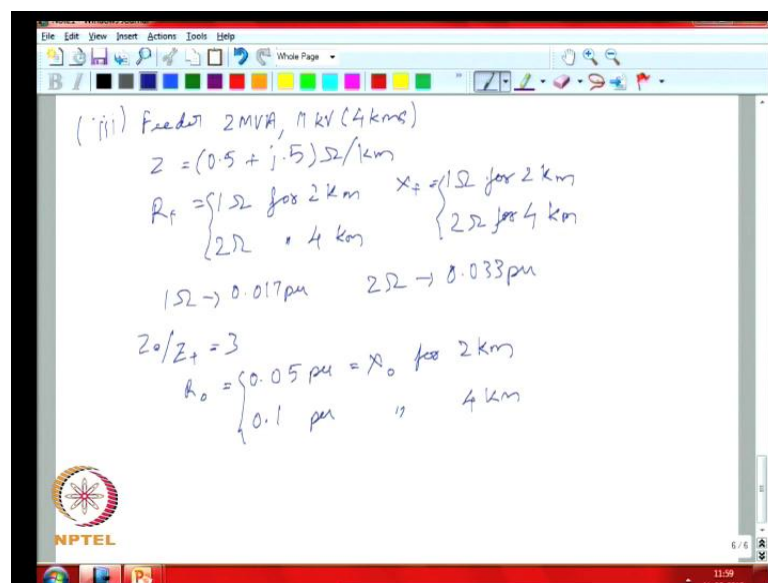 File Edit View Insert Actions Tools Help
Whole Page
B I
(iii) Feeder 2MVA, 11 kV (4kms)
Z = (0.5 + j.5) Ω/km
R+ = { 1 Ω for 2 km X+ = { 1 Ω for 2 km
2 Ω " 4 km 2 Ω for 4 km
1Ω → 0.017pu 2Ω → 0.033pu
Z0/Z+ = 3
R0 = { 0.05 pu = X0 for 2 km
0.1 pu " 4 km
NPTEL
6/6
11:59